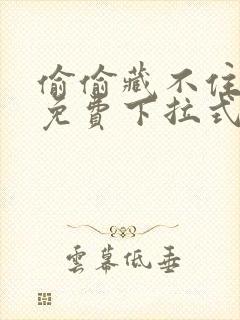 偷偷藏不住
免費下拉式
雲幕低垂